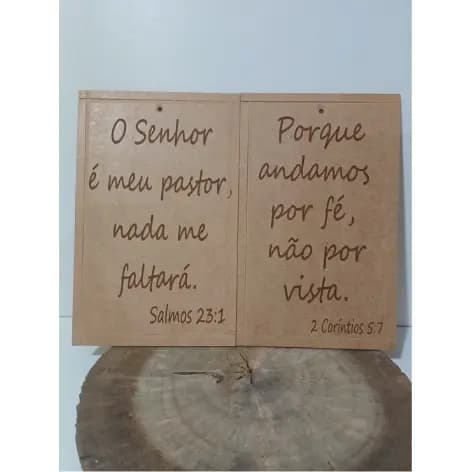 O Senhor
é meu pastor,
nada me
faltará.
Salmos 23:1
Porque
andamos
por fé,
não por
vista.
2 Coríntios 5:7